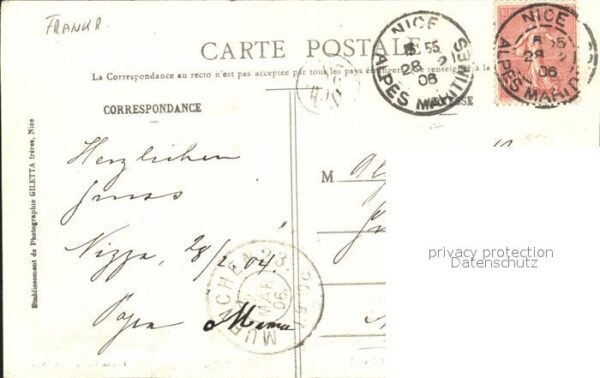 FRANKR.
CARTE POSTALE
La Correspondance au recto n'est pas acceptée par tous les pays étrangers. (Se renseigner à la
CORRESPONDANCE
NICE
5 55
28 2
06
ALPES MARITIMES
NICE
28 2
06
ALPES MARIT
Etablissement de Photographie GILETTA frères, Nice
Herzlichen
Gruss
Nizza, 28/2. 04.
Papa Mama
MUENCHEN
MAR
06
M
privacy protection
Datenschutz